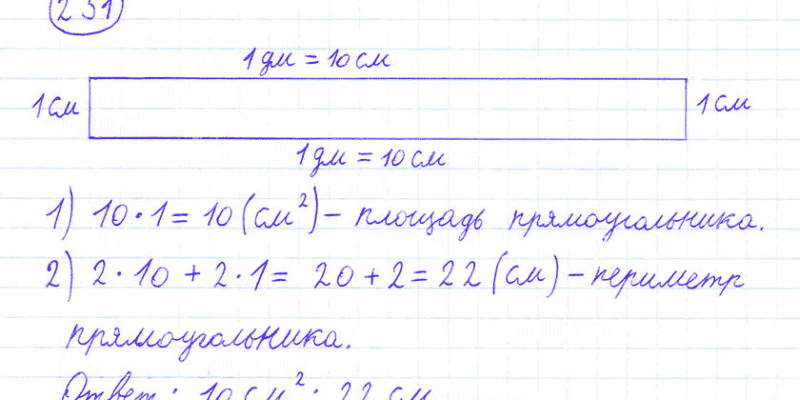 231
1 дм = 10 см
1 см
1 см
1 дм = 10 см
1) 10 · 1 = 10 (см²) – площадь прямоугольника.
2) 2 · 10 + 2 · 1 = 20 + 2 = 22 (см) – периметр
прямоугольника.
Ответ: 10 см²; 22 см